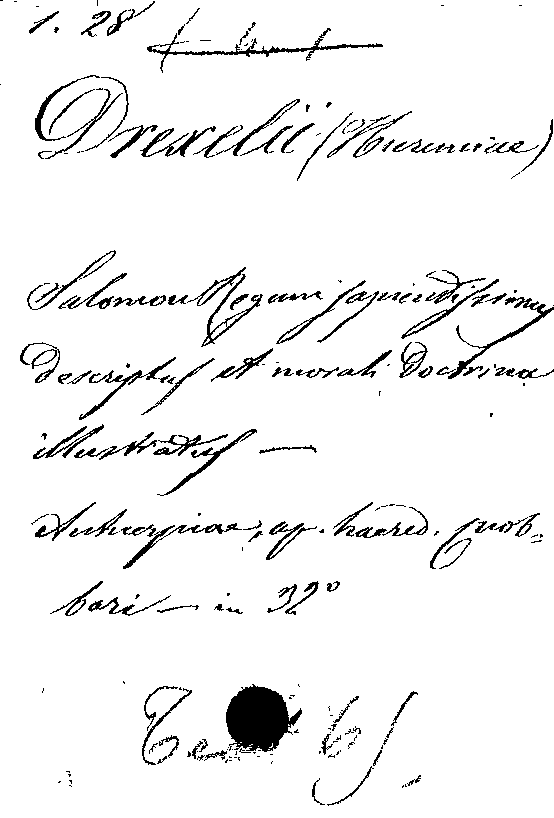 1. 28
Drexelii (Hieremiae)
Salomon Regum sapientissimus
descriptus et morali doctrina
illustratus —
Antverpiae, ap. haered. Cnob-
bari — in 32°